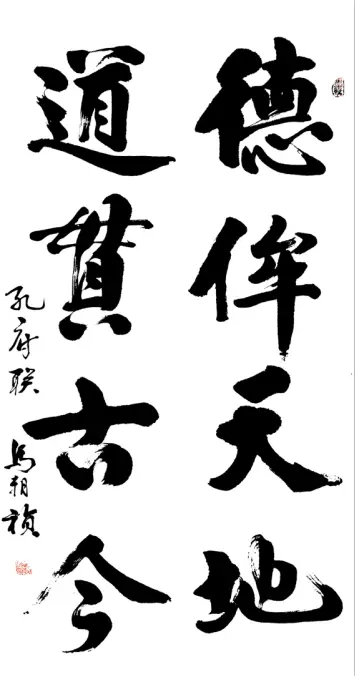 德侔天地
道貫古今
孔府联 馬朝禎